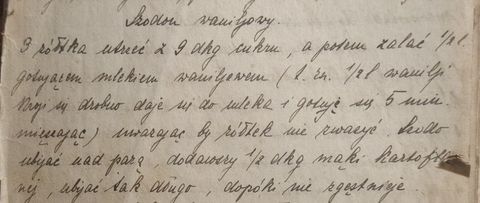 Szodon waniljowy.
9 żółtka utrzeć z 9 dkg cukru, a potem zalać 1/2 l
gotującem mlekiem waniljowem (t. zn. 1/2 l wanilji
kroi się drobno daje się do mleka i gotuje się 5 min.
mieszając) uważając by żółtek nie zwarzyć. Szodo
ubijać nad parą, dodawszy 1/2 dkg mąki kartofla
nej, ubijać tak długo, dopóki nie zgęstnieje.